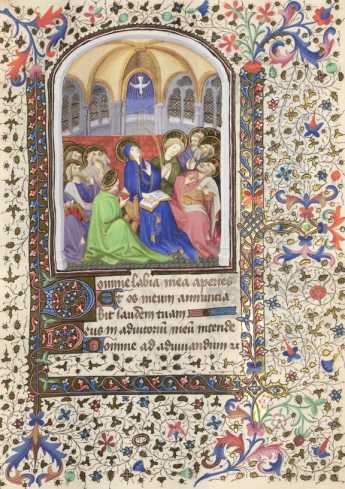 Domine labia mea aperies
Et os meum annuncia
bit laudem tuam
Deus in adiutoriū meū intende
Domine ad adiuuandum